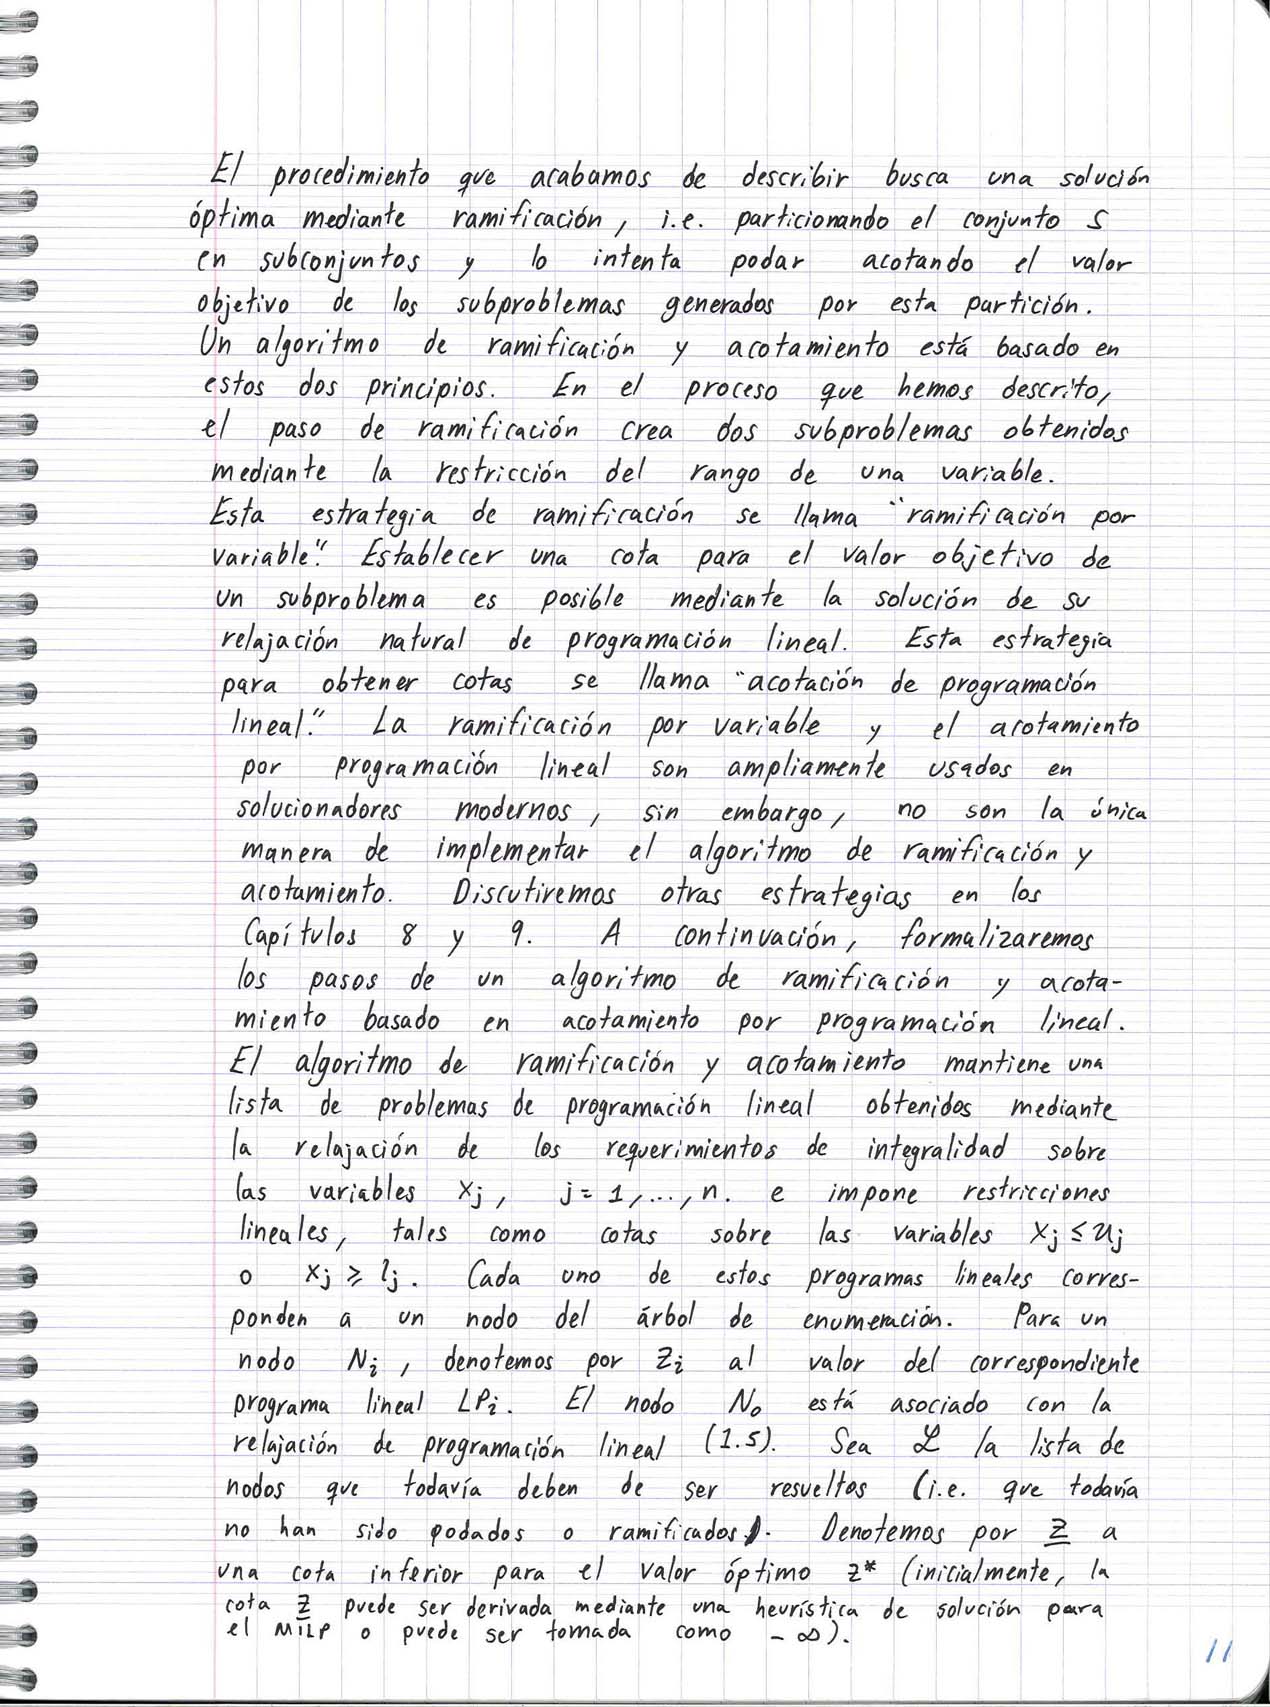 El procedimiento que acabamos de describir busca una solución
óptima mediante ramificación, i.e. particionando el conjunto S
en subconjuntos y lo intenta podar acotando el valor
objetivo de los subproblemas generados por esta partición.
Un algoritmo de ramificación y acotamiento está basado en
estos dos principios. En el proceso que hemos descrito,
el paso de ramificación crea dos subproblemas obtenidos
mediante la restricción del rango de una variable.
Esta estrategia de ramificación se llama "ramificación por
variable". Establecer una cota para el valor objetivo de
un subproblema es posible mediante la solución de su
relajación natural de programación lineal. Esta estrategia
para obtener cotas se llama "acotación de programación
lineal". La ramificación por variable y el acotamiento
por programación lineal son ampliamente usados en
solucionadores modernos, sin embargo, no son la única
manera de implementar el algoritmo de ramificación y
acotamiento. Discutiremos otras estrategias en los
Capítulos 8 y 9. A continuación, formalizaremos
los pasos de un algoritmo de ramificación y acota-
miento basado en acotamiento por programación lineal.
El algoritmo de ramificación y acotamiento mantiene una
lista de problemas de programación lineal obtenidos mediante
la relajación de los requerimientos de integralidad sobre
las variables xj, j = 1, ..., n. e impone restricciones
lineales, tales como cotas sobre las variables xj ≤ uj
o xj ≥ lj. Cada uno de estos programas lineales corres-
ponden a un nodo del árbol de enumeración. Para un
nodo Ni, denotemos por Zi al valor del correspondiente
programa lineal LPi. El nodo N₀ está asociado con la
relajación de programación lineal (1.5). Sea ℒ la lista de
nodos que todavía deben de ser resueltos (i.e. que todavía
no han sido podados o ramificados). Denotemos por Z̲ a
una cota inferior para el valor óptimo z* (inicialmente, la
cota Z̲ puede ser derivada mediante una heurística de solución para
el MILP o puede ser tomada como -∞).
11